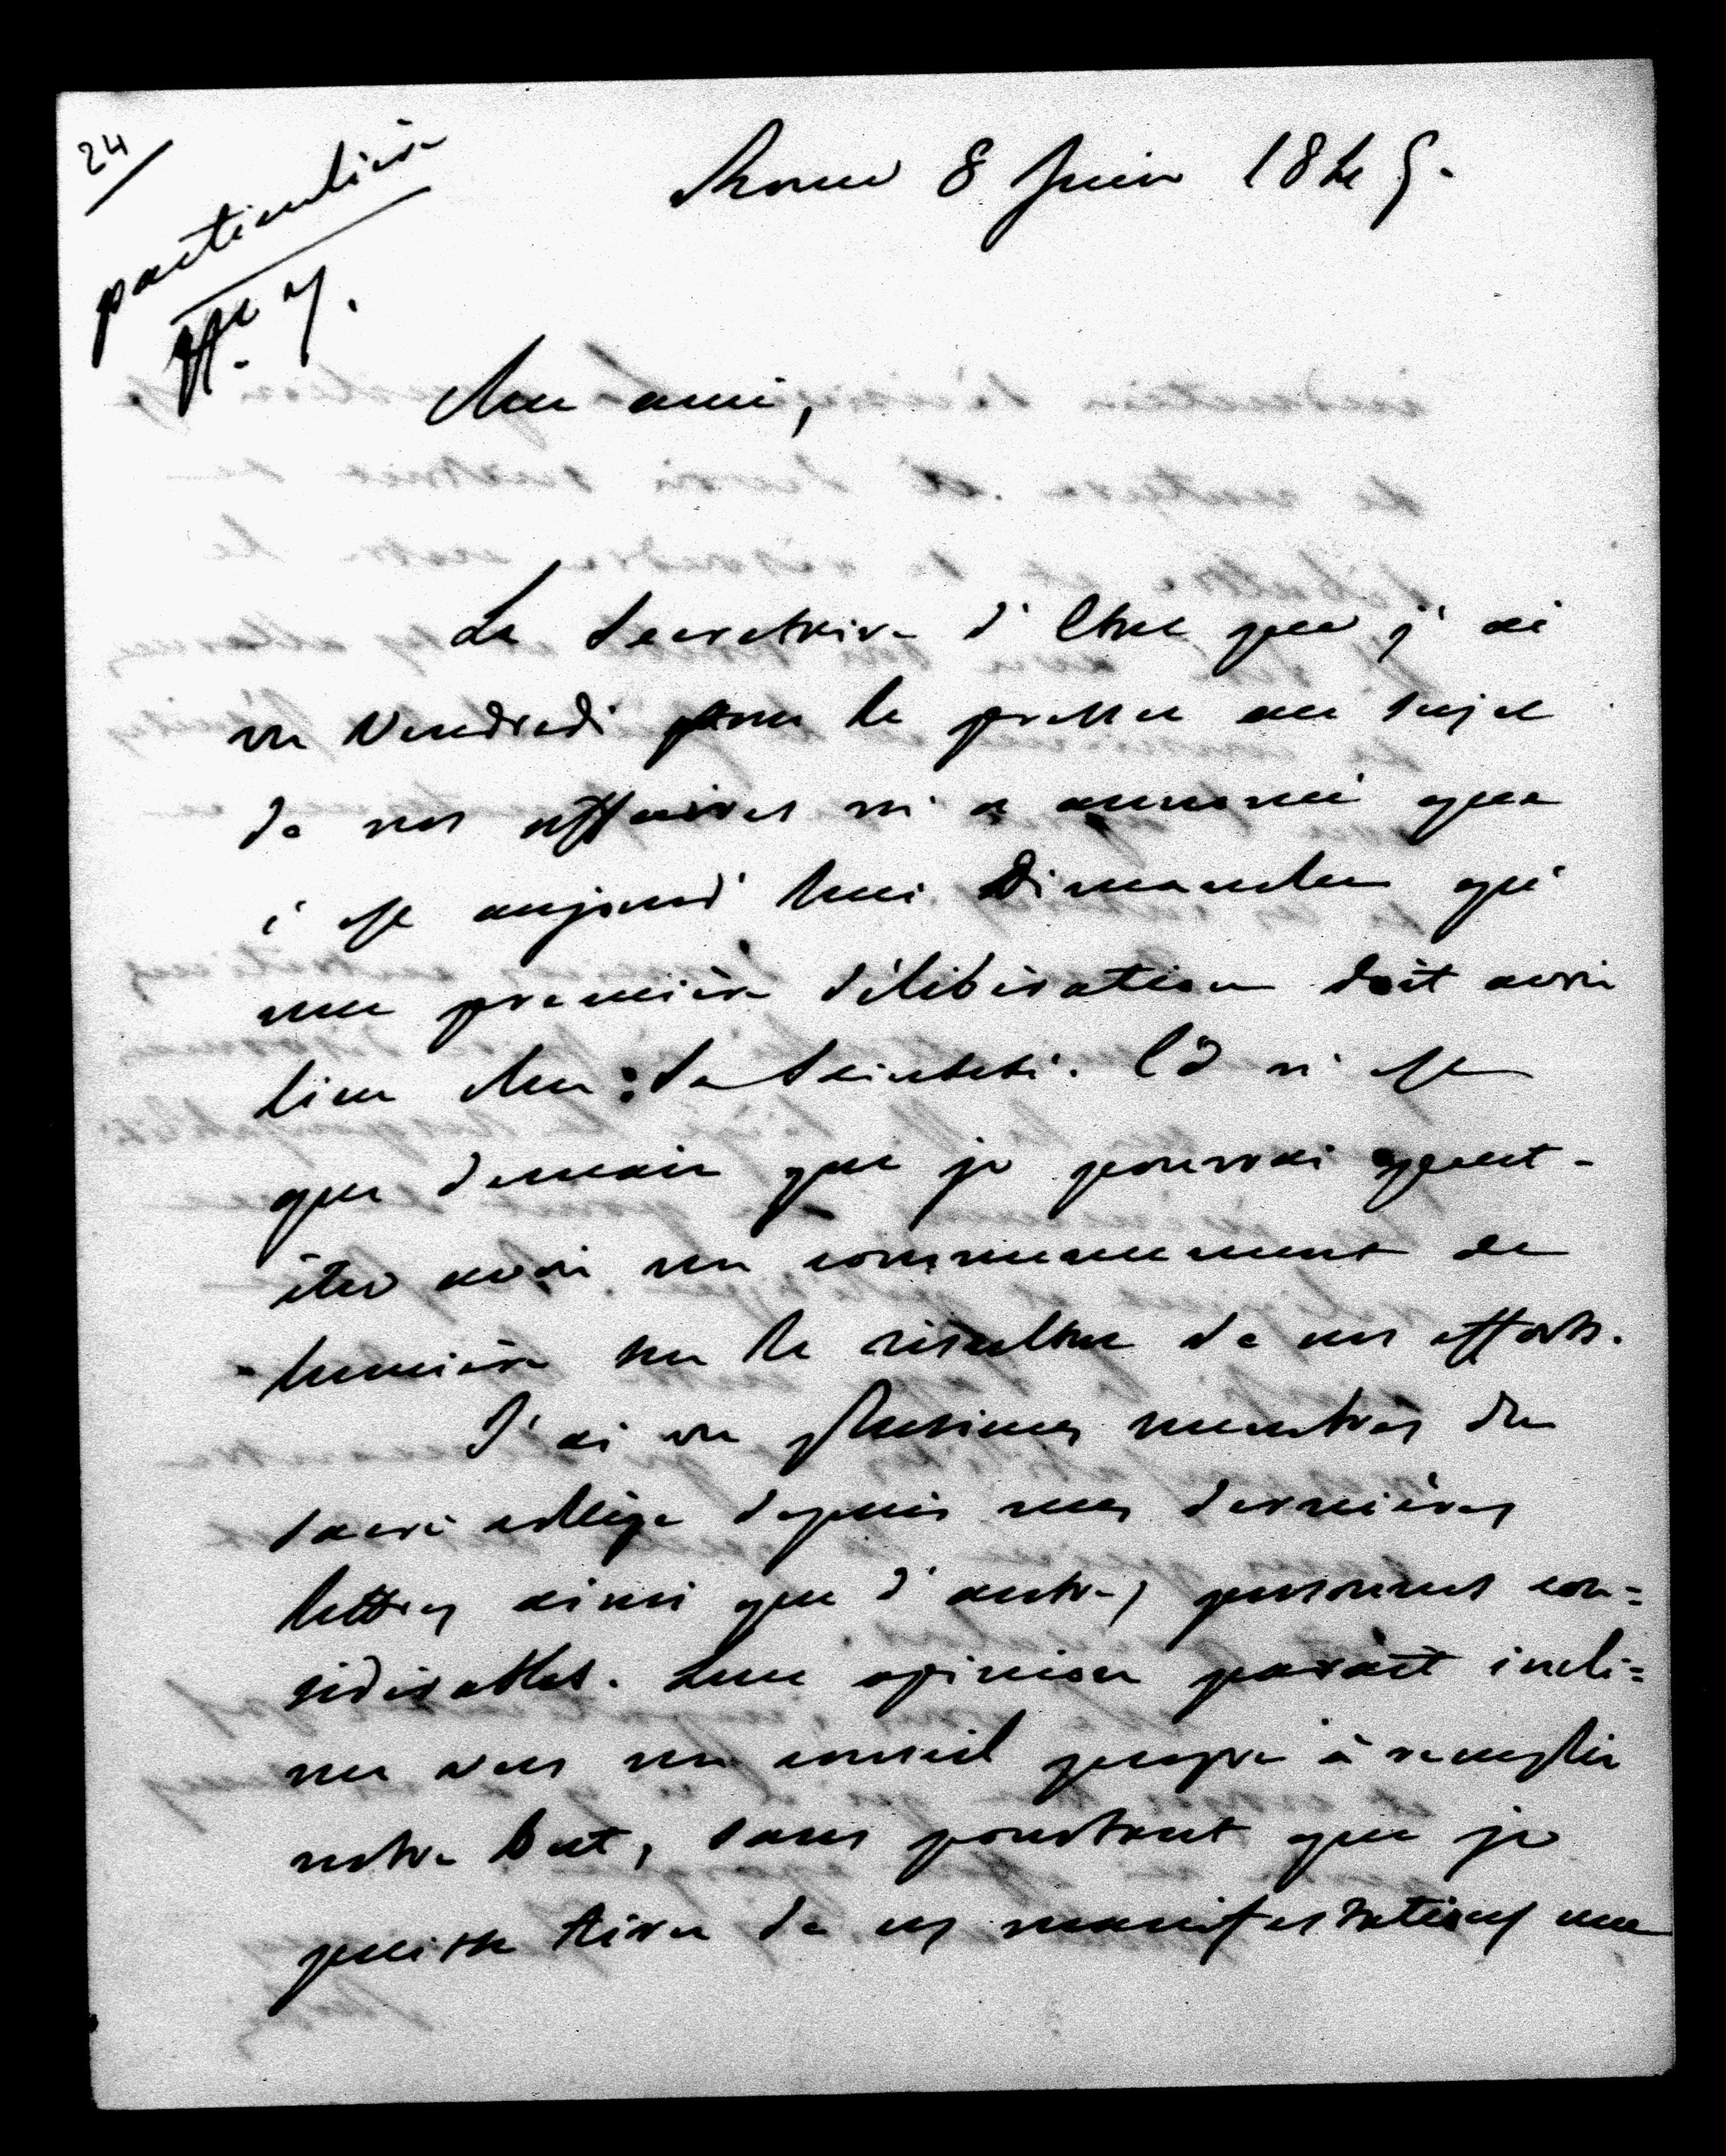 24
particulière
Rome 8 Juin 1845.
Mon ami,
Le Secretaire d'Etat que j'ai
vu Vendredi pour le presser au sujet
de nos affaires m'a annoncé que
c'est aujourd'hui Dimanche qu'
une première délibération doit avoir
lieu chez Sa Sainteté. Ce n'est
que demain que je pourrai peut-
être avoir un commencement de
lumière sur le résultat de nos efforts.
J'ai vu plusieurs membres du
sacré collège depuis mes dernières
lettres ainsi que d'autres personnes con=
sidérables. Leur opinion paraît incli=
ner vers un conseil propre à remplir
notre but, sans pourtant que je
puisse tirer de ces manifestations une